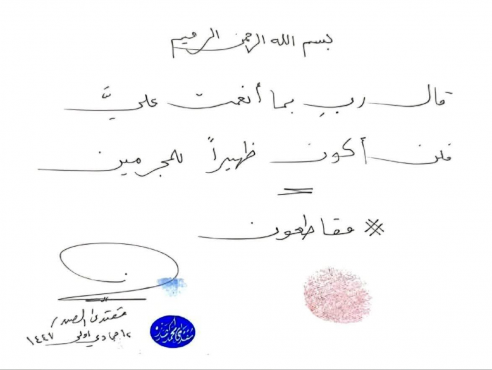 بسم الله الرحمن الرحيم
قال ربِ بما أنعمت عليَّ
فلن أكون ظهيراً للمجرمين
※ مقاطعون
مقتدى الصدر
جمادي اولى ١٤٤٧